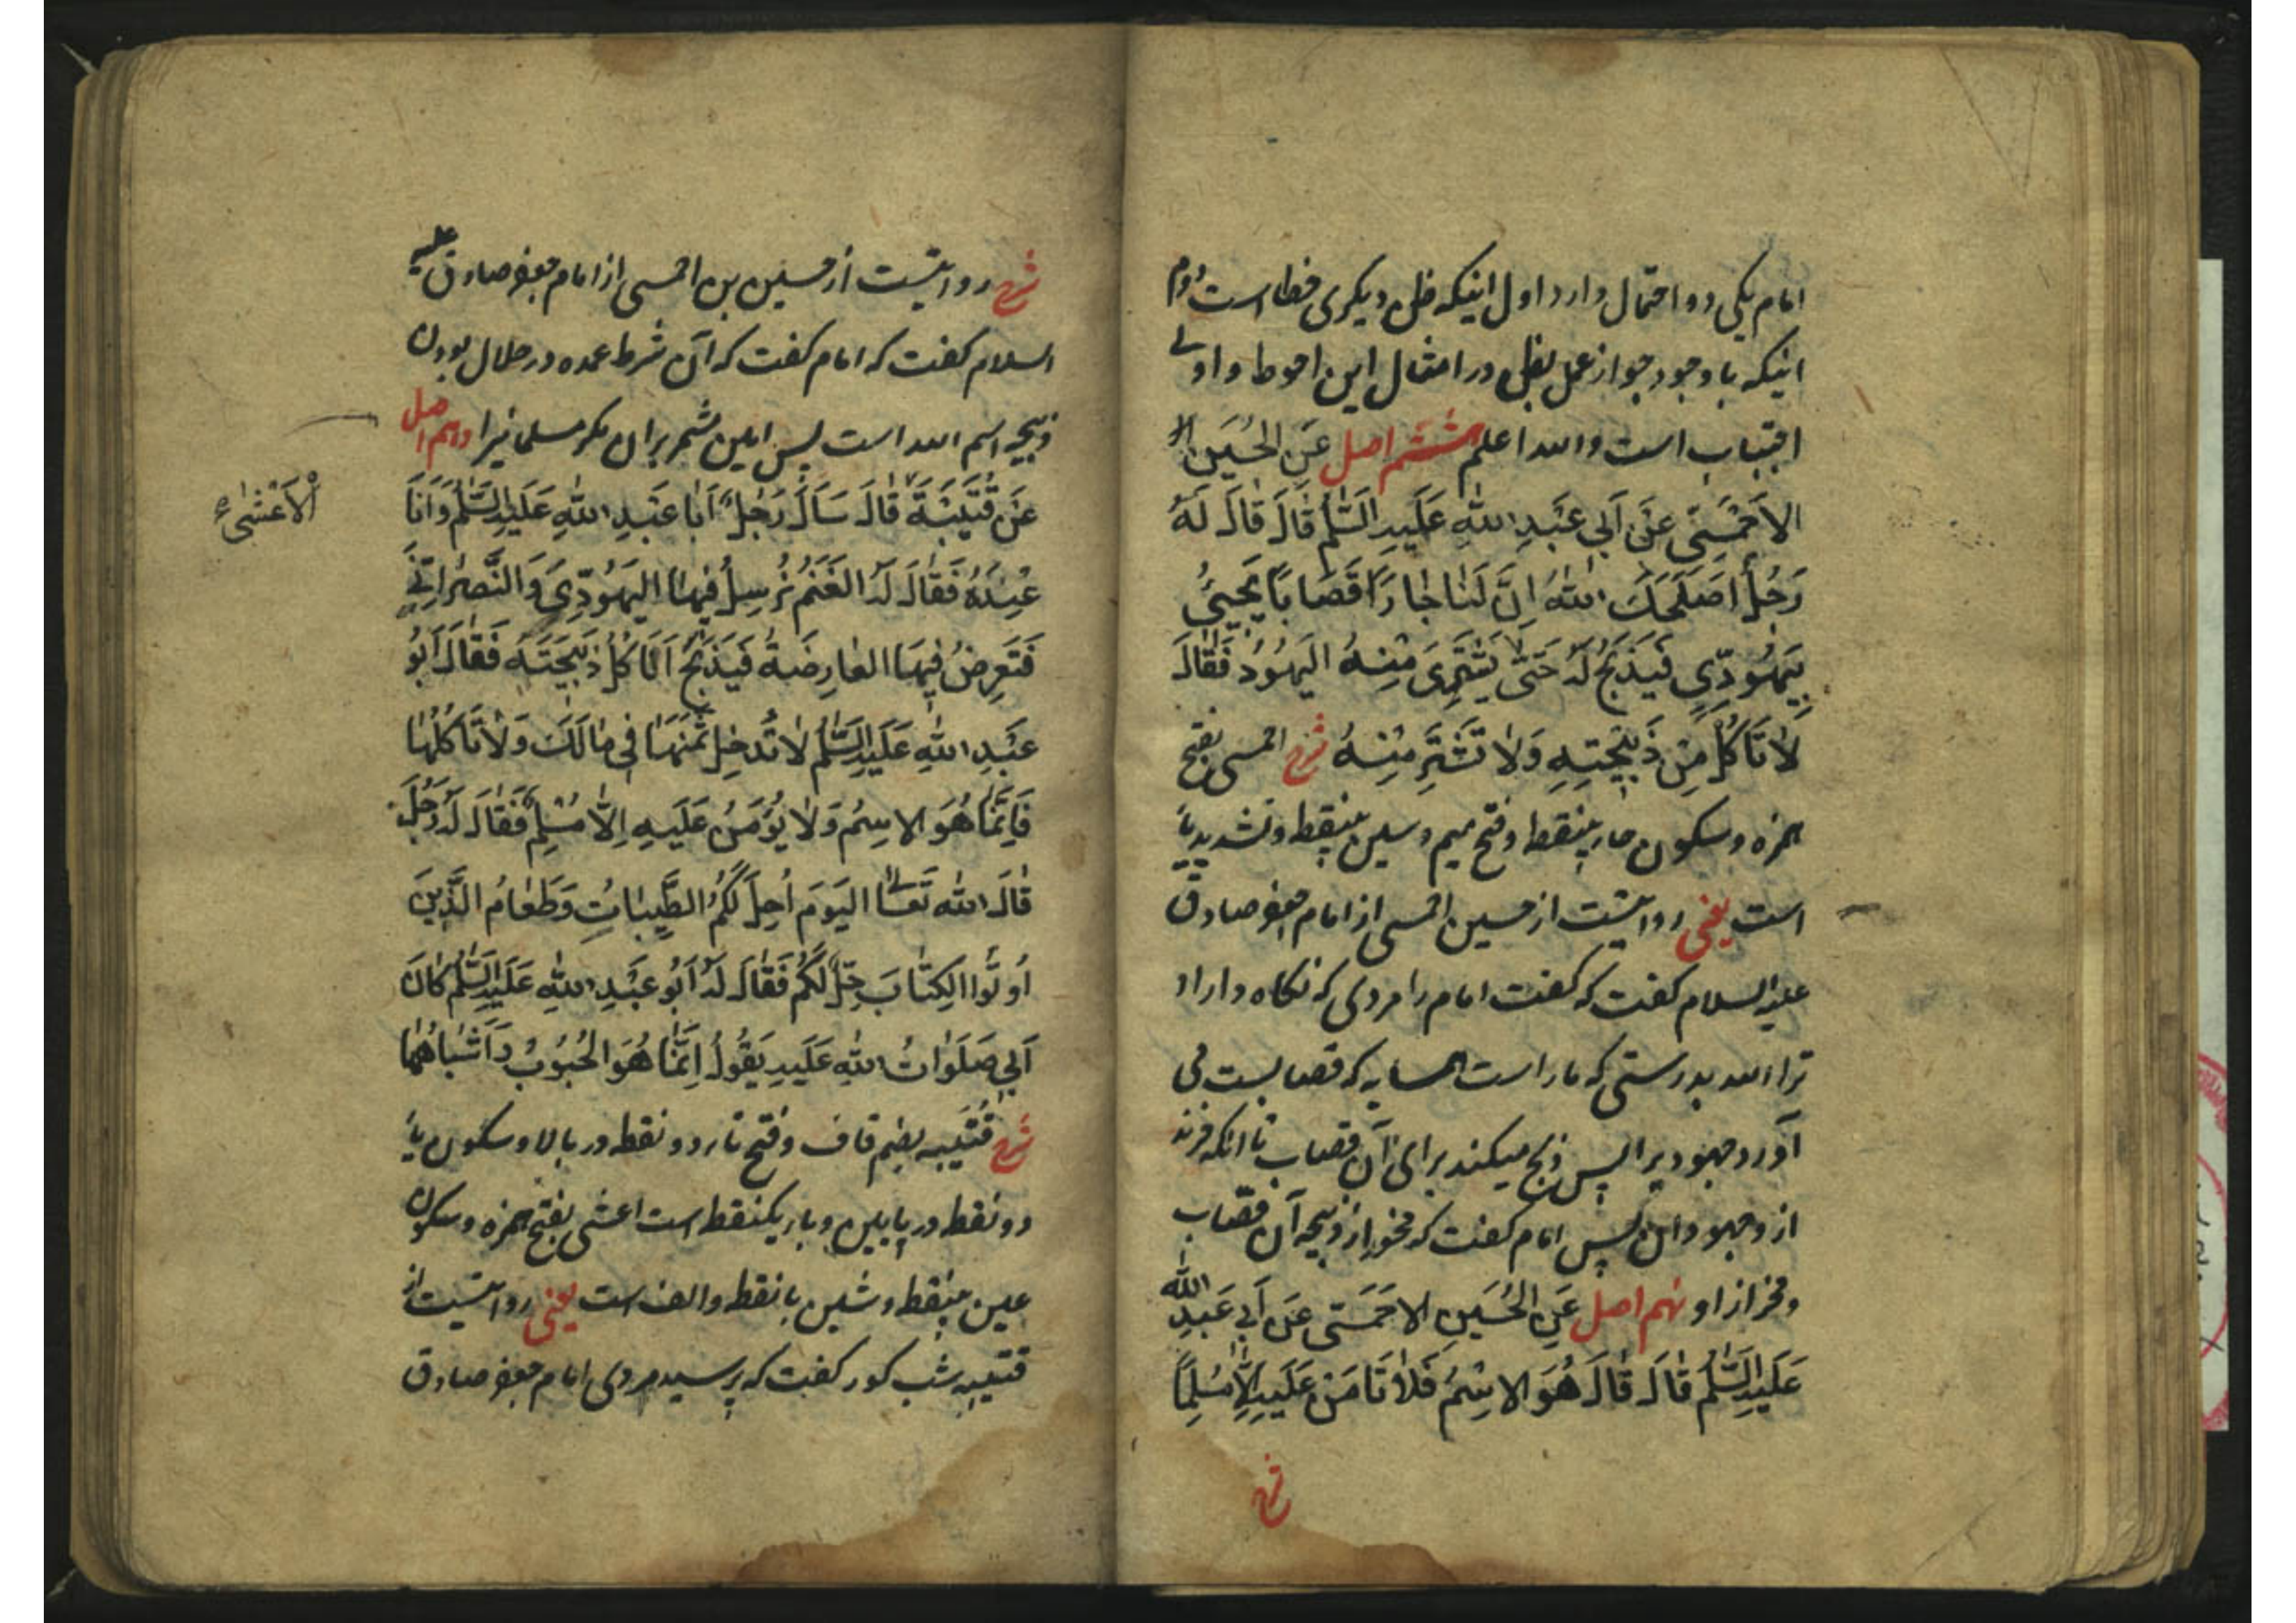 امام یکی دو احتمال دارد اول اینکه ظن دیگری خطاست دوم
اینکه با وجود جواز عمل بظن در امثال این احوط و اولی
اجتناب است والله اعلم هشتم اصل عَنِ الحُسَینِ الا
الاَحْمَسِیِّ عَنْ اَبِی عَبْدِ اللهِ عَلَیهِ السَّلٰمُ قَالَ قَالَ لَهُ
رَجُلٌ اَصْلَحَکَ اللهُ اِنَّ لَنَا جَارًا قَصَّابًا یَجِیئُ
بِیَهُودِیٍّ فَیَذْبَحُ لَهُ حَتّٰی یَشْتَرِیَ مِنْهُ الیَهُودُ فَقَالَ
لَا تَاکُلْ مِنْ ذَبِیحَتِهِ وَلَا تَشْتَرِ مِنْهُ شرح احمسی بفتح
همزه و سکون حاء بینقطه و فتح میم و سین بینقطه و تشدید یاء
است یعنی روایتست از حسین احمسی از امام جعفر صادق
علیه السلام گفت که گفت امام را مردی که نگاه داراد
ترا الله بدرستی که ما راست همسایه که قصابست می
آورد جهودیرا پس ذبح میکند برای آن قصاب تا آنکه خرند
از و جهودان پس امام گفت که مخور از ذبیحه آن قصاب
و مخر از او نهم اصل عَنِ الحُسَینِ الاَحْمَسِیِّ عَنْ اَبِی عَبدِ الله
عَلَیهِ السَّلٰمُ قَالَ قَالَ هُوَ الاِسْمُ فَلَا تَامَنْ عَلَیهِ اِلَّا مُسْلِمًا
شرح
شرح روایتست از حسین بن احمسی از امام جعفر صادق علیه
السلام گفت که امام گفت که آن شرط عمده در حلال بودن
ذبیحه اسم الله است پس امین مشمر بران مگر مسلمانیرا دهم اصل
عَنْ قُتَیْبَةَ قَالَ سَاَلَ رَجُلٌ اَبَا عَبْدِ اللهِ عَلَیهِ السَّلٰمُ وَاَنَا
الْاَعْشٰی
عِنْدَهُ فَقَالَ لَهُ الغَنَمُ نُرْسِلُ فِیهَا الیَهُودِیَّ وَالنَّصْرَانِیَّ
فَتَعْرِضُ فِیهَا العَارِضَةُ فَیَذْبَحُ اَنَاکُلُ ذَبِیحَتَهُ فَقَالَ اَبُو
عَبْدِ اللهِ عَلَیهِ السَّلٰمُ لَا تُدْخِلْ ثَمَنَهَا فِی مَالِکَ وَلَا تَاکُلْهَا
فَاِنَّمَا هُوَ الاِسْمُ وَلَا یُؤْمَنُ عَلَیهِ اِلَّا مُسْلِمٌ فَقَالَ لَهُ رَجُلٌ
قَالَ اللهُ تَعَالٰی الیَوْمَ اُحِلَّ لَکُمُ الطَّیِّبَاتُ وَطَعَامُ الَّذِینَ
اُوتُوا الکِتَابَ حِلٌّ لَکُمْ فَقَالَ لَهُ اَبُو عَبْدِ اللهِ عَلَیهِ السَّلٰمُ کَانَ
اَبِی صَلَوَاتُ اللهِ عَلَیهِ یَقُولُ اِنَّمَا هُوَ الحُبُوبُ وَاَشْبَاهُهَا
شرح قُتَیبه بضم قاف و فتح تاء دو نقطه در بالا و سکون یاء
دو نقطه در پایین و باء یکنقطه است اعشی بفتح همزه و سکون
عین بینقطه و شین با نقطه و الف است یعنی روایتست از
قتیبه شب کور گفت که پرسید مردی امام جعفر صادق